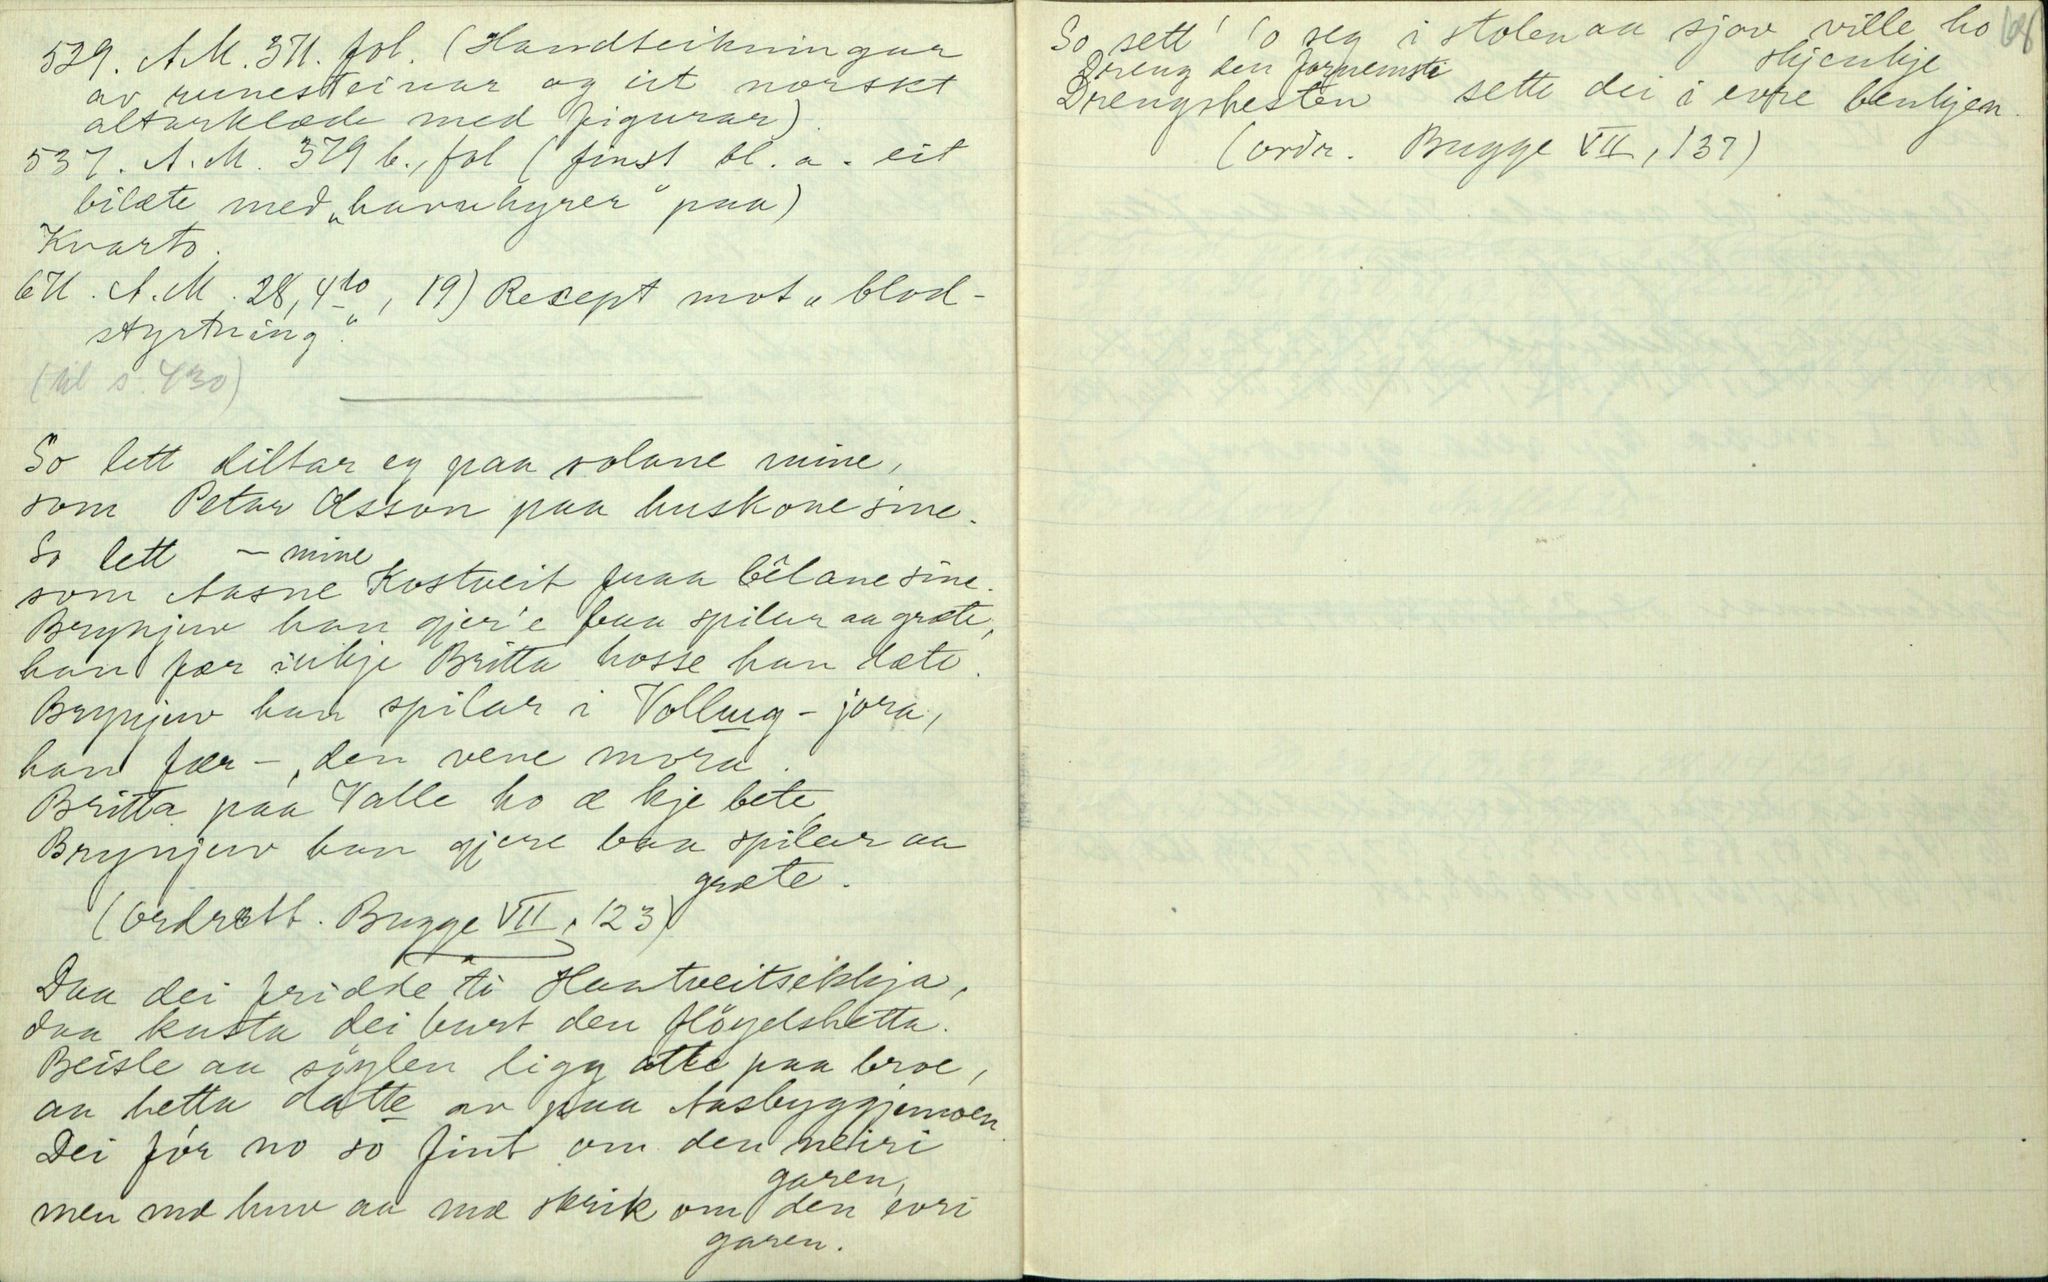 529. A.M. 371. fol. (Handteikningar
av runesteinar og eit norskt
altarklæde med figurar).
537. A.M. 379 b., fol (finst bl. a. eit
bilæte med „havuhyrer“ paa)
Kvarto.
671. A.M. 28, 4to, 19) Resept mot „blod-
styrtning“.
(til s. 430)
So lett diltar eg paa solane mine,
som Petar Olsson paa huskone sine.
So lett — mine
som Aasne Kostveit paa bêlane sine.
Brynjuv han gjer'e baa spilar aa græte,
han fær inkje Britta hosse han læte.
Brynjuv han spilar i Vollaug-jora,
han fær —, den vene mora.
Britta paa Valle ho æ kje bete,
Brynjuv han gjere baa spilar aa
græte.
(Ordrett. Bugge VII, 123)
Daa dei fridde ti Haatveitsekkja,
daa kasta dei burt den flöyelshetta.
Beisle aa söylen ligg atte paa broe,
aa hetta datte av paa Aasbyggjemoen.
Dei fór no so fint om den neiri
garen,
men mæ huv aa mæ skrik om den evri
garen.
So sett' 'o seg i stolen aa sjav ville ho
skjenkje
Dreng den fornemste
Drengshesten sette dei i evre benkjen.
(ordr. Bugge VII, 137)
68